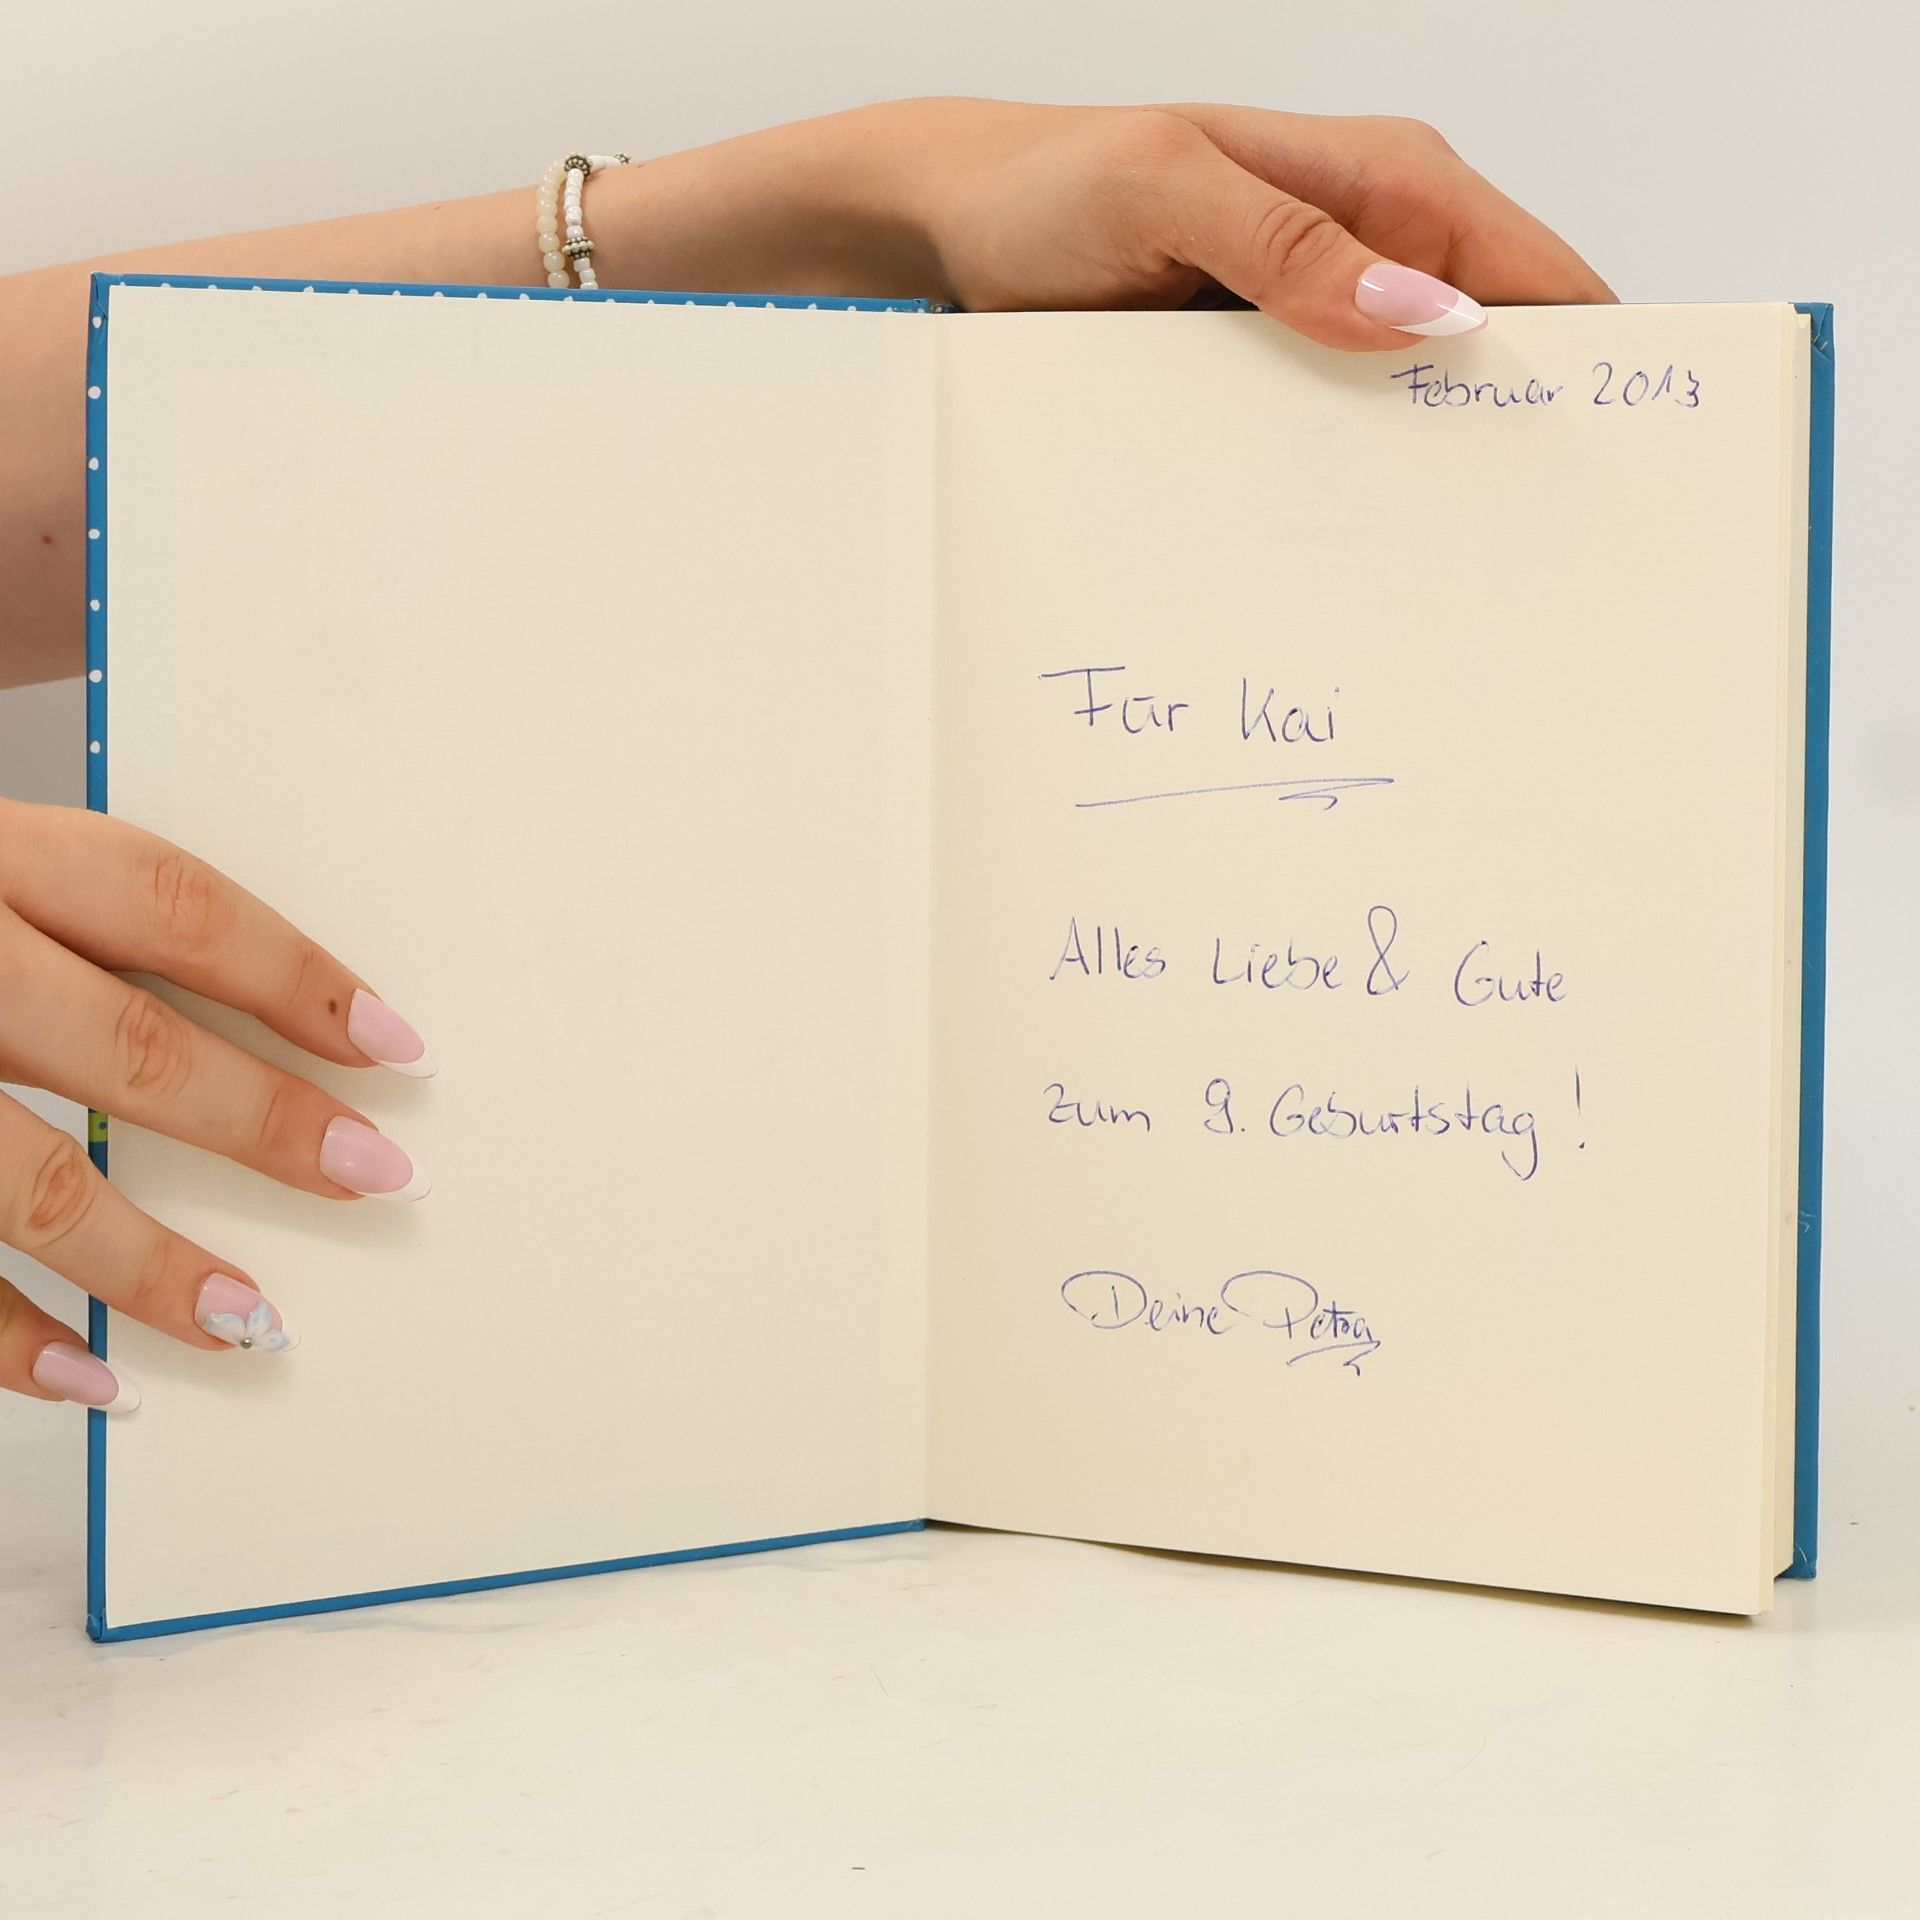 Februar 2013
Für Kai
Alles Liebe & Gute
zum 9. Geburtstag!
Deine Petra